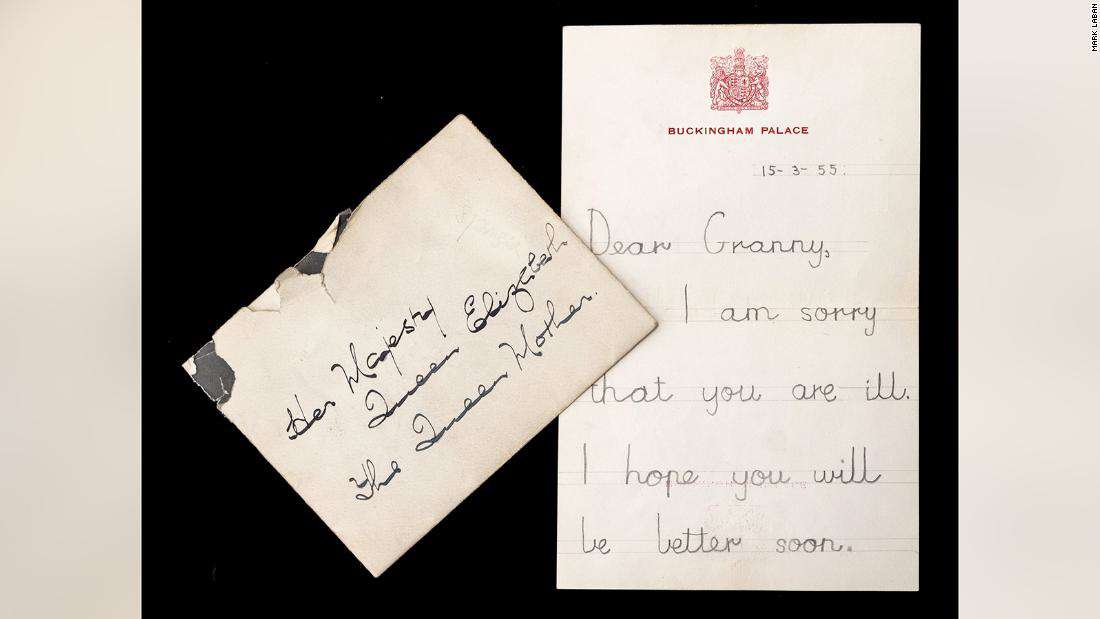 Her Majesty
Queen Elizabeth
The Queen Mother.
BUCKINGHAM PALACE
15-3-55.
Dear Granny,
I am sorry
that you are ill.
I hope you will
be better soon.
MARK LABAN